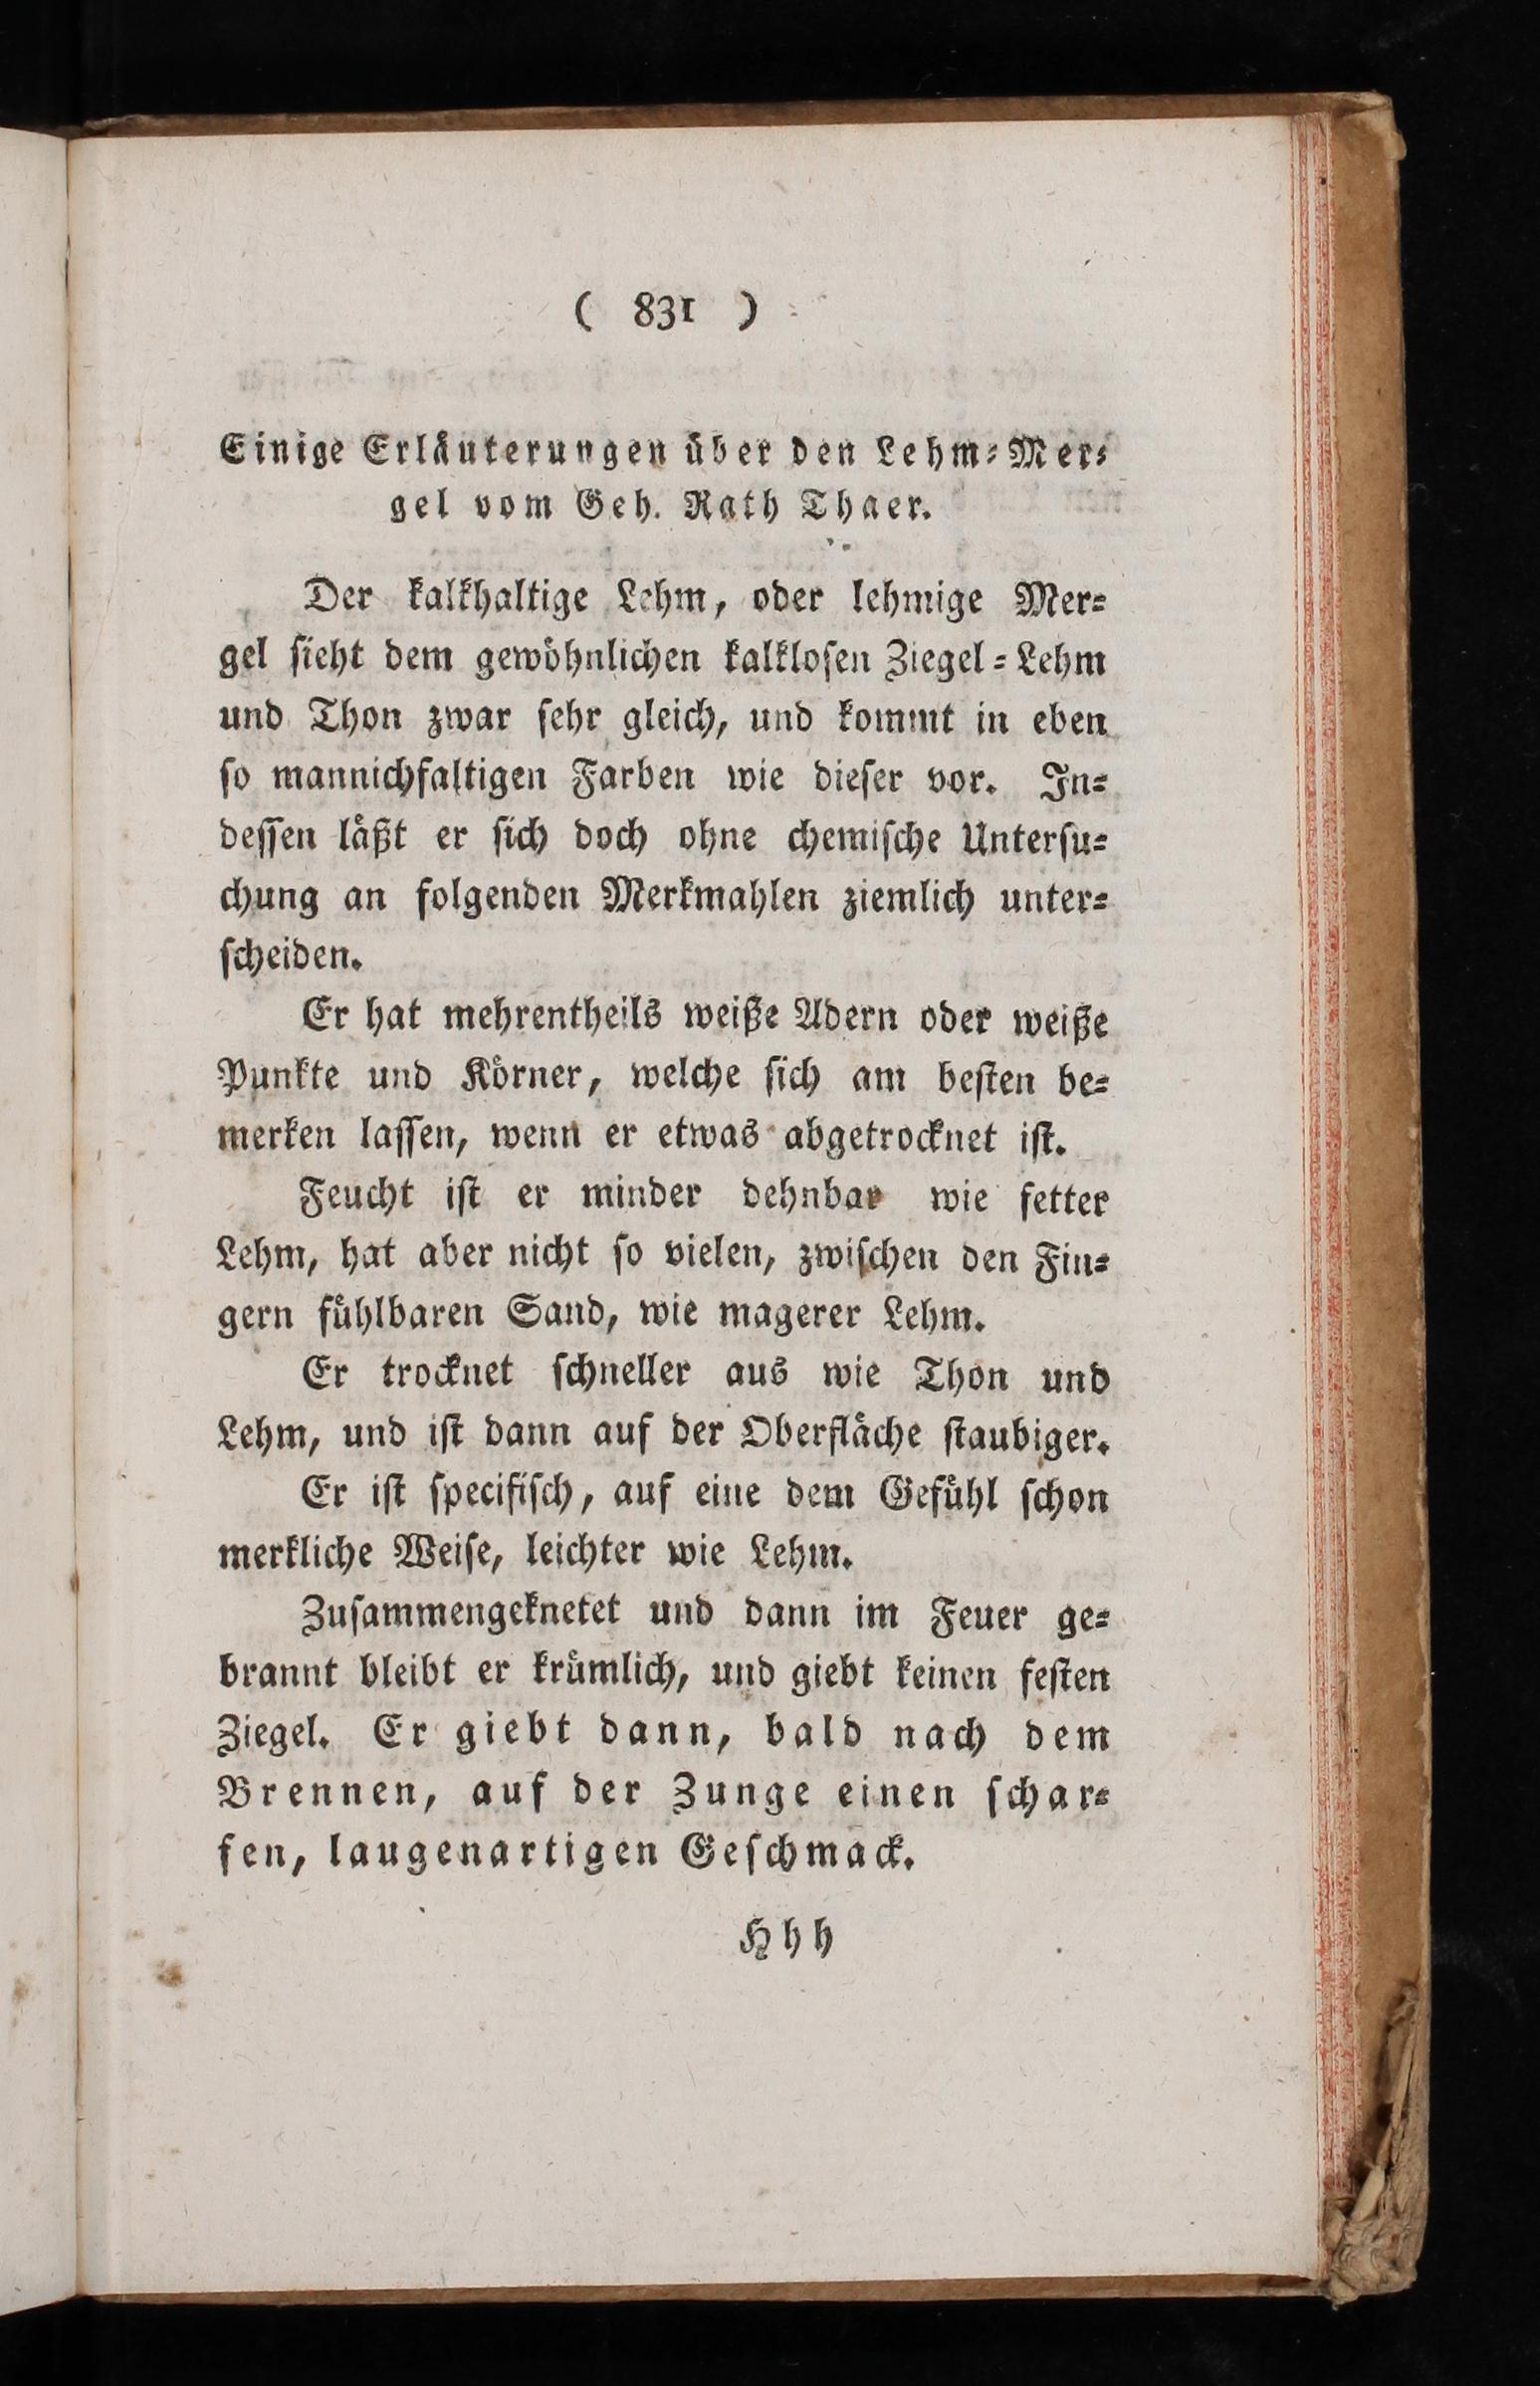 ( 831 )
Einige Erläuterungen über den Lehm-Mer-
gel vom Geh. Rath Thaer.
Der kalkhaltige Lehm, oder lehmige Mer-
gel sieht dem gewöhnlichen kalklosen Ziegel-Lehm
und Thon zwar sehr gleich, und kommt in eben
so mannichfaltigen Farben wie dieser vor. In-
dessen läßt er sich doch ohne chemische Untersu-
chung an folgenden Merkmahlen ziemlich unter-
scheiden.
Er hat mehrentheils weiße Adern oder weiße
Punkte und Körner, welche sich am besten be-
merken lassen, wenn er etwas abgetrocknet ist.
Feucht ist er minder dehnbar wie fetter
Lehm, hat aber nicht so vielen, zwischen den Fin-
gern fühlbaren Sand, wie magerer Lehm.
Er trocknet schneller aus wie Thon und
Lehm, und ist dann auf der Oberfläche staubiger.
Er ist specifisch, auf eine dem Gefühl schon
merkliche Weise, leichter wie Lehm.
Zusammengeknetet und dann im Feuer ge-
brannt bleibt er krümlich, und giebt keinen festen
Ziegel. Er giebt dann, bald nach dem
Brennen, auf der Zunge einen schar-
fen, laugenartigen Geschmack.
Hhh